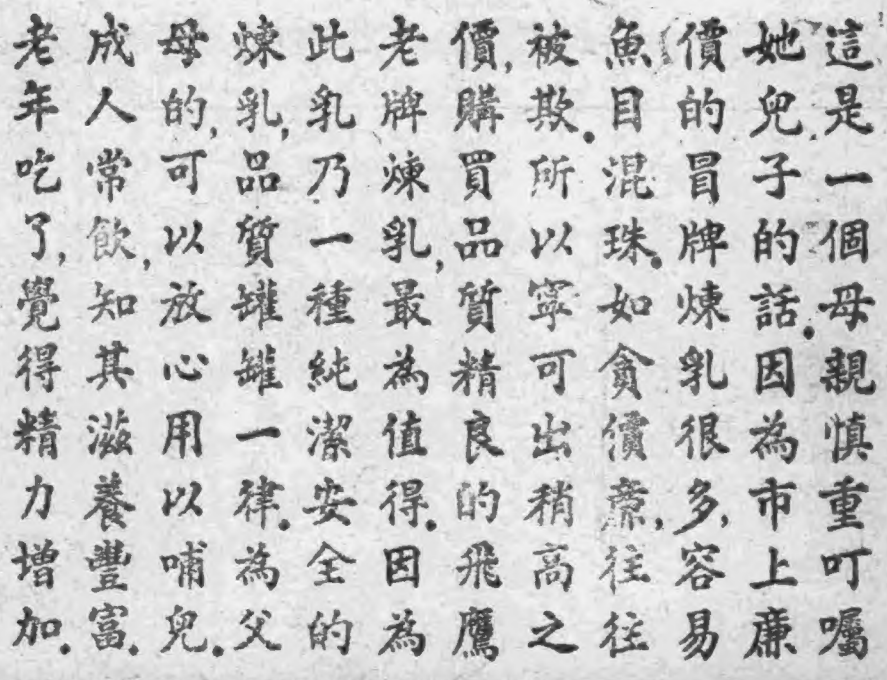 這是一個母親慎重叮囑
她兒子的話。因為市上廉
價的冒牌煉乳很多，容易
魚目混珠。如貪價廉，往往
被欺。所以寧可出稍高之
價，購買品質精良的飛鷹
老牌煉乳，最為值得。因為
此乳乃一種純潔安全的
煉乳，品質罐罐一律。為父
母的，可以放心用以哺兒。
成人常飲，知其滋養豐富。
老年吃了，覺得精力增加。